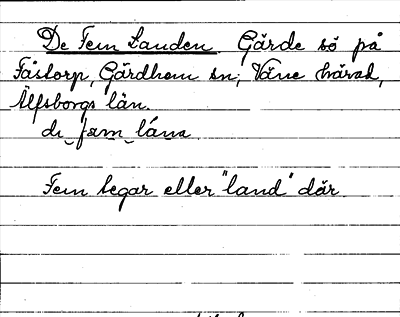 De Fem Landen Gärde sö på
Fåstorp, Gärdhem sn; Väne härad,
Älfsborgs län.
di fæm lána
Fem tegar eller "land" där